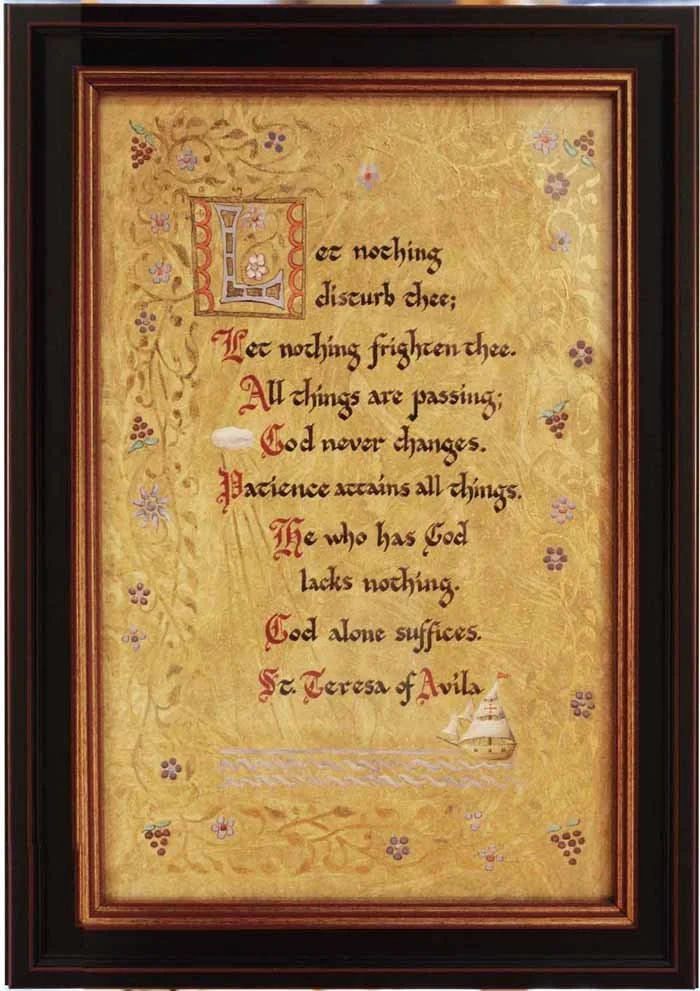 Let nothing
disturb thee;
Let nothing frighten thee.
All things are passing;
God never changes.
Patience attains all things.
He who has God
lacks nothing.
God alone suffices.
St. Teresa of Avila